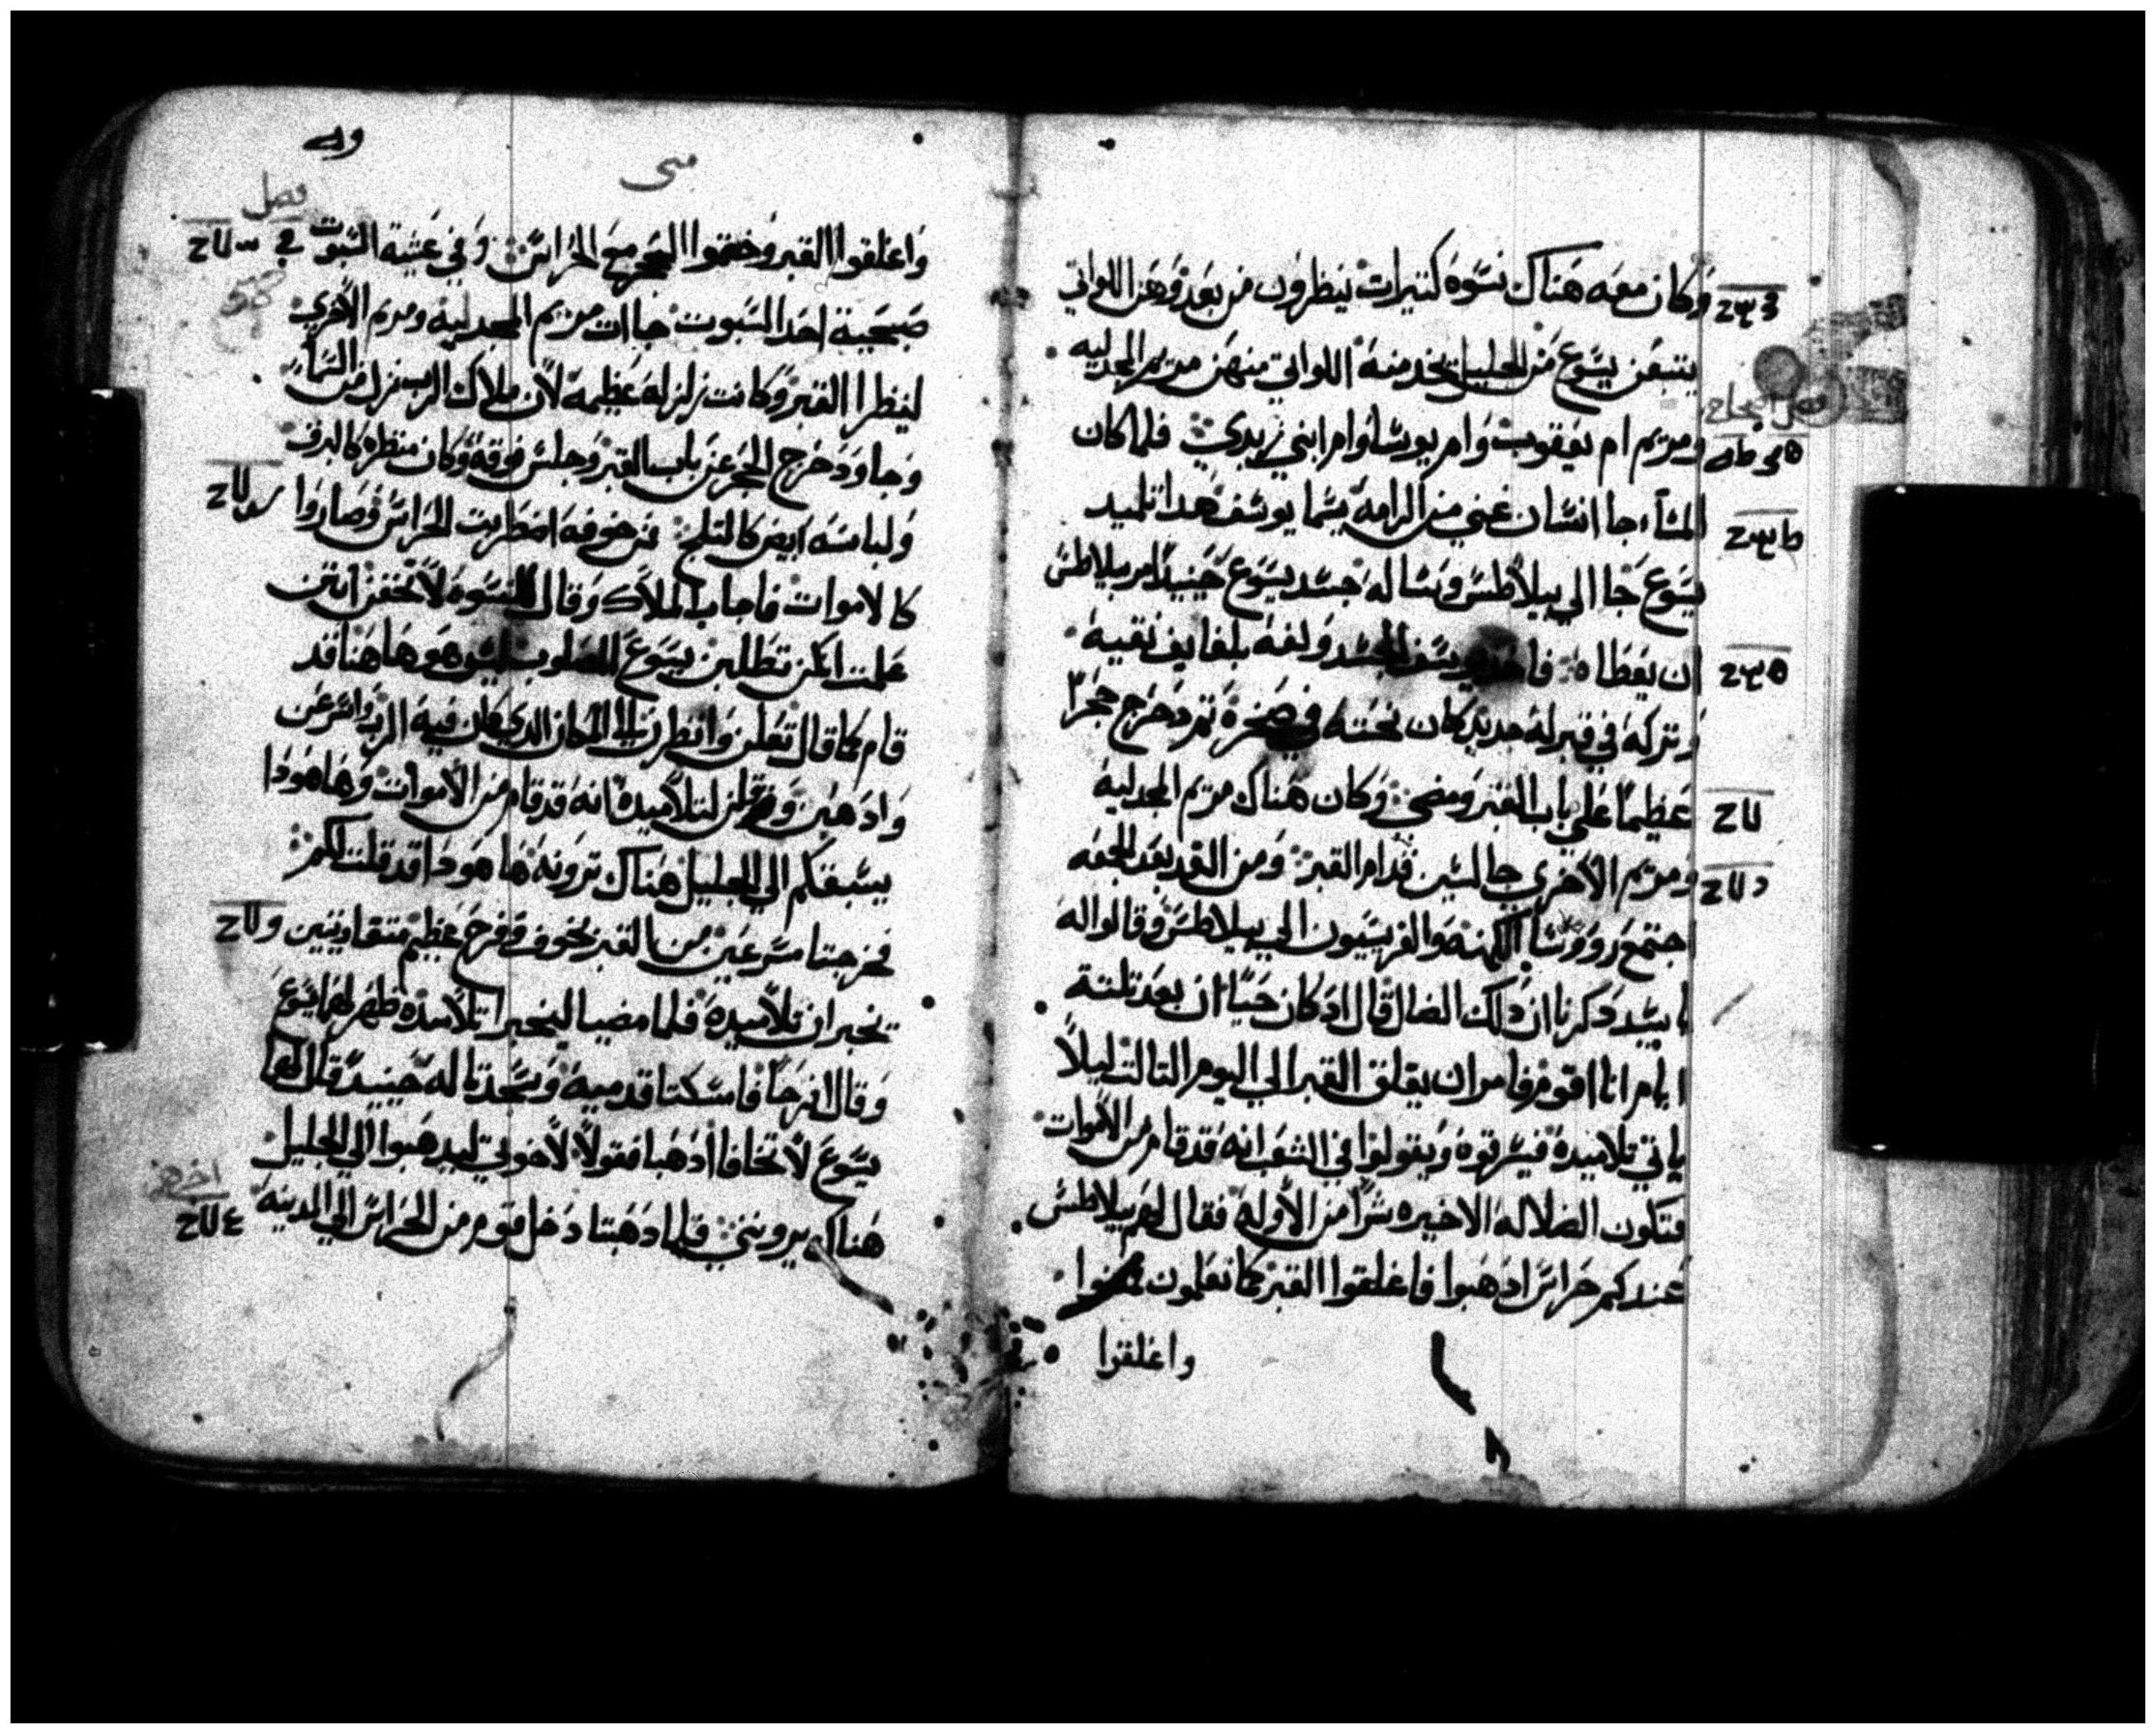 وكان معه هناك نسوه كتيرات ينظرون من بعد وهن اللواتي
يتبعن يسوع من الجليل يخدمنه اللواتي منهن مريم المجدليه
ومريم ام يعقوب وام يوسا وام ابني زبدي فلما كان
المساء جا انسان غني من الرامه يسما يوسف هدا تلميد
يسوع جا الي بيلاطس وسا له جسد يسوع حينيد امر بيلاطس
ان يعطا ه فاخد يوسف الجسد ولفه بلفايف نقيه
وتركه في قبر له جديد كان نحته في صخره تم دحرج حجرا
عظيما علي باب القبر ومضي وكان هناك مريم المجدلية
ومريم الاخري جالسين قدام القبر ومن الغد بعد الجمعه
اجتمع رووسا الكهنه والفريسيون الي بيلاطس وقالوا له
يا سيد دكرنا ان دلك الضال قال اد كان حيا ان بعد تلتة
ايام انا اقوم فامر ان يغلق القبر الي اليوم التالت ليلا
ياتي تلاميده فيسرقوه ويقولوا في الشعب انه قد قام من الاموات
فتكون الضلاله الاخيره شرا من الاوله فقال لهم بيلاطس
عندكم حراس ادهبوا فاغلقوا القبر كما تعلمون فمضوا
واغلقوا
متي
فصل
واغلقوا القبر وختموا الحجر مع الحراس وفي عشية السبوت
صبحية احد السبوت جاات مريم المجدلية ومريم الاخري
لينظرا القبر وكانت زلزله عظيمه لان ملاك الرب نزل من السماء
وجا ودحرج الحجر عن باب القبر وجلس فوقه وكان منظره كالبرق
ولباسه ابيض كالتلج فمن خوفه اضطربت الحراس وصاروا
كالاموات فاجاب الملاك وقال للنسوه لا تخفن انتن
علمت انكن تطلبن يسوع المصلوب ليس هو هاهنا قد
قام كما قال تعلن وانظرن الي المكان الدي كان فيه الرب واسرعن
وادهبن وقلن لتلاميده انه قد قام من الاموات وها هودا
يسبقكم الي الجليل هناك ترونه ها هودا قد قلت لكم
فخرجتا مسرعين من القبر بخوف وفرح عظيم متعاديتين
يخبران تلاميده فلما مضيا ليخبرا تلاميده ظهر لهما يسوع
وقال افرحا فامسكتا قدميه وسجدتا له حينيد قال لهما
يسوع لا تخافا ادهبا فقولا لاخوتي ليدهبوا الي الجليل
هناك يرونني فلما دهبتا دخل قوم من الحراس الي المدينه